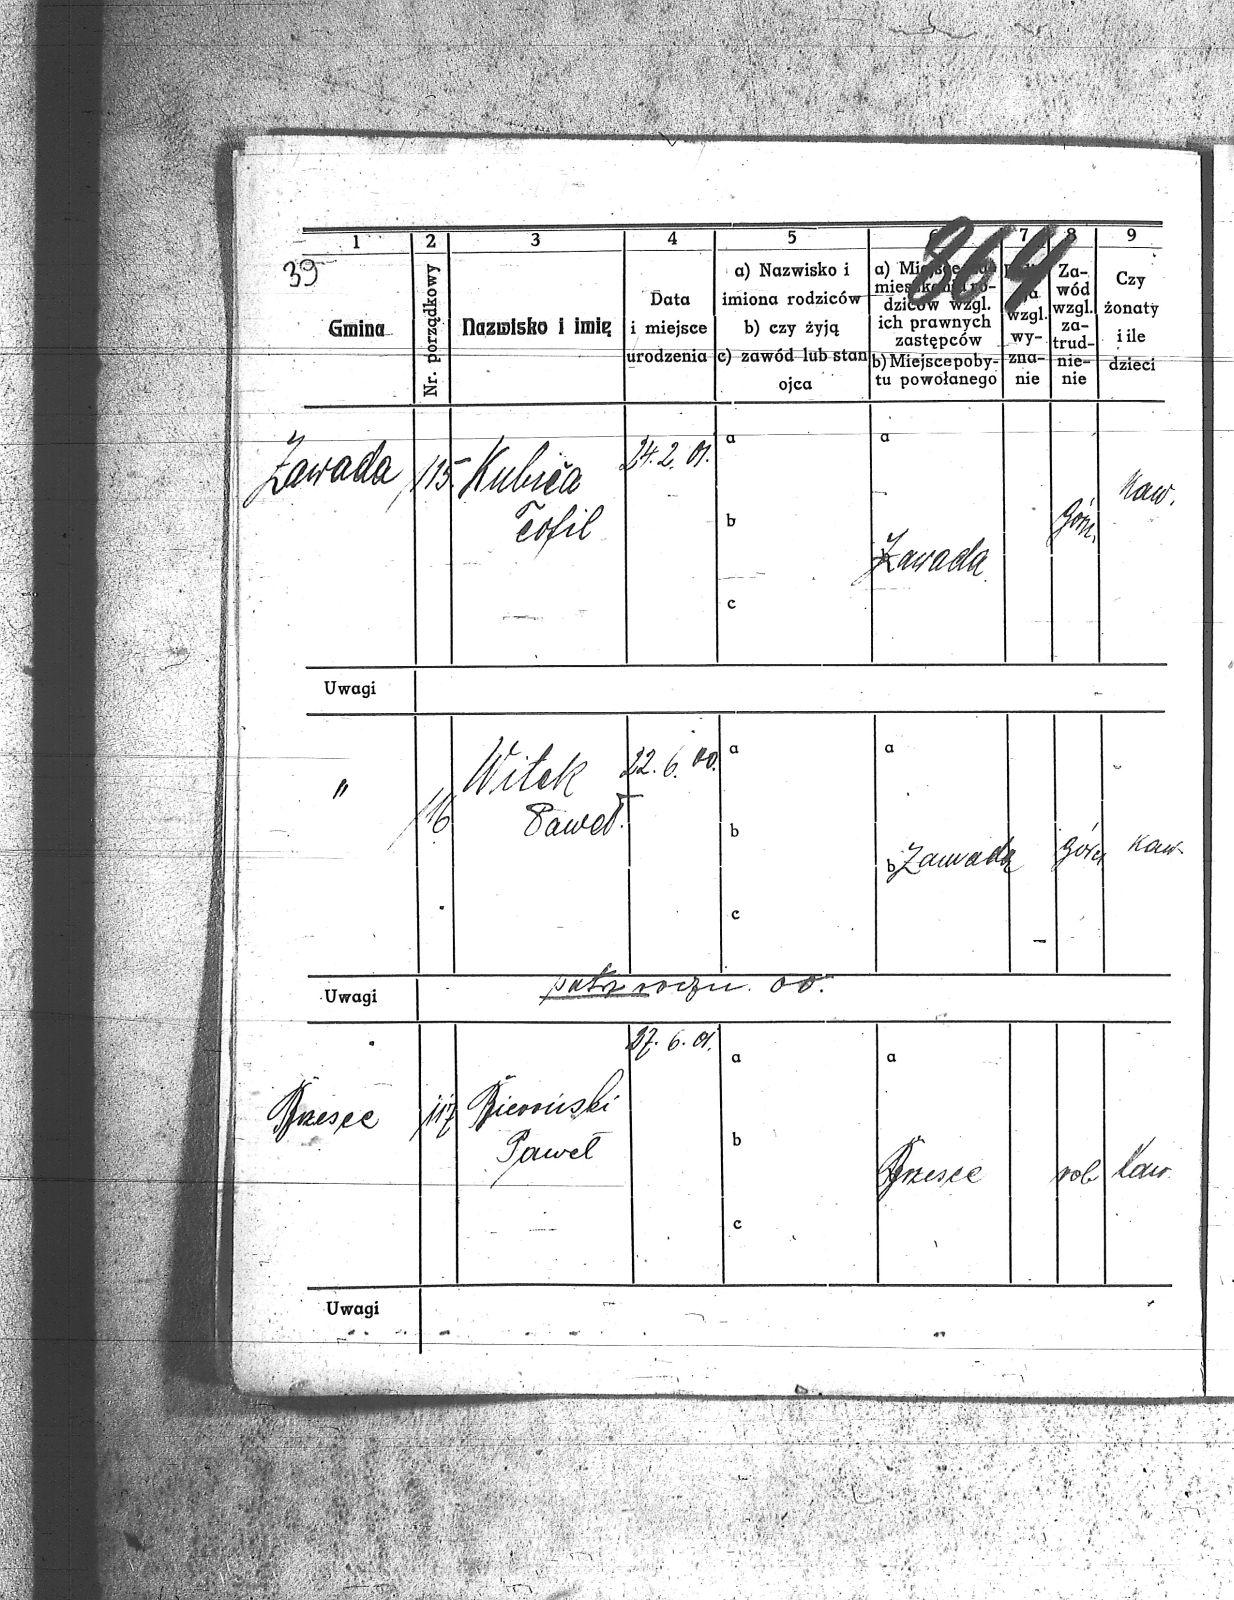 864
39
1 2 3 4 5 6 7 8 9
Gmina
Nr. porządkowy
Nazwisko i imię
Data
i miejsce
urodzenia
a) Nazwisko i
imiona rodziców
b) czy żyją
c) zawód lub stan
ojca
a) Miejsce za-
mieszkania ro-
dziców wzgl.
ich prawnych
zastępców
b) Miejsce poby-
tu powołanego
wzgl.
wy-
zna-
nie
Za-
wód
wzgl.
za-
trud-
nie-
nie
Czy
żonaty
i ile
dzieci
Zawada 115 Kubica 24. 2. 01. a a
Teofil b Zawada Górn. Kaw.
c
Uwagi
" 116 Witek 22. 6. 00. a a
Paweł b b Zawada Górn Kaw.
c
Uwagi patrz roczn. 00.
27. 6. 01. a a
Brzesce 117 Bieroński
Paweł b Brzesce rob Kaw.
c
Uwagi